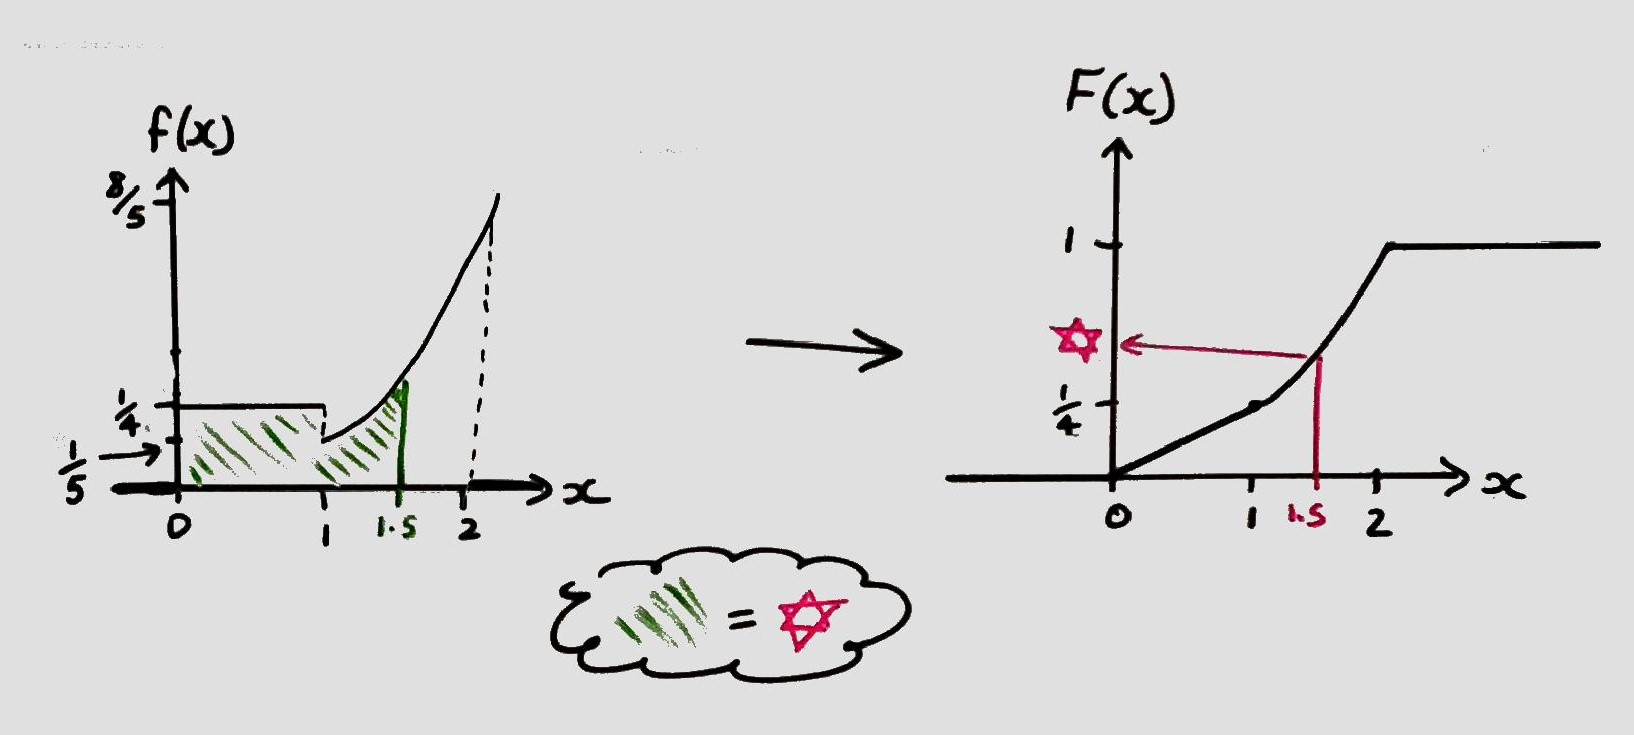 f(x)
8/5
1/4
1/5
0
1
1.5
2
x
F(x)
1
1/4
0
1
1.5
2
x
=